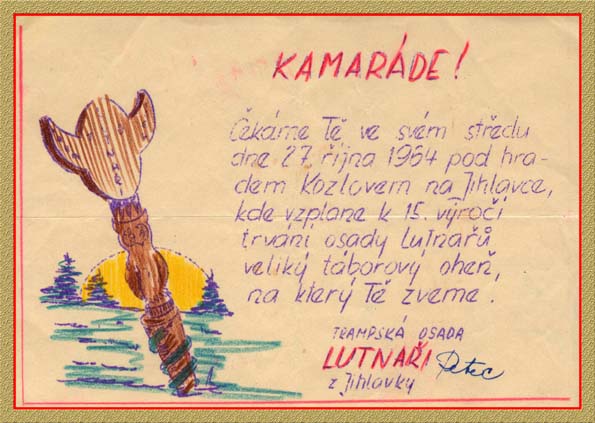 KAMARÁDE!
Čekáme Tě ve svém středu
dne 27 října 1964 pod hra-
dem Kozlovem na Jihlavce,
kde vzplane k 15. výročí
trvání osady Lutnařů
veliký táborový oheň,
na který Tě zveme.
TRAMPSKÁ OSADA
LUTNAŘI
z Jihlavky